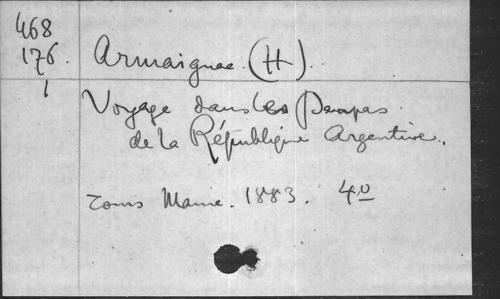 468
176.
1
Armaignac. (H)
Voyage dans les Pampas
de la République Argentine.
Tours Mame. 1883. 4º